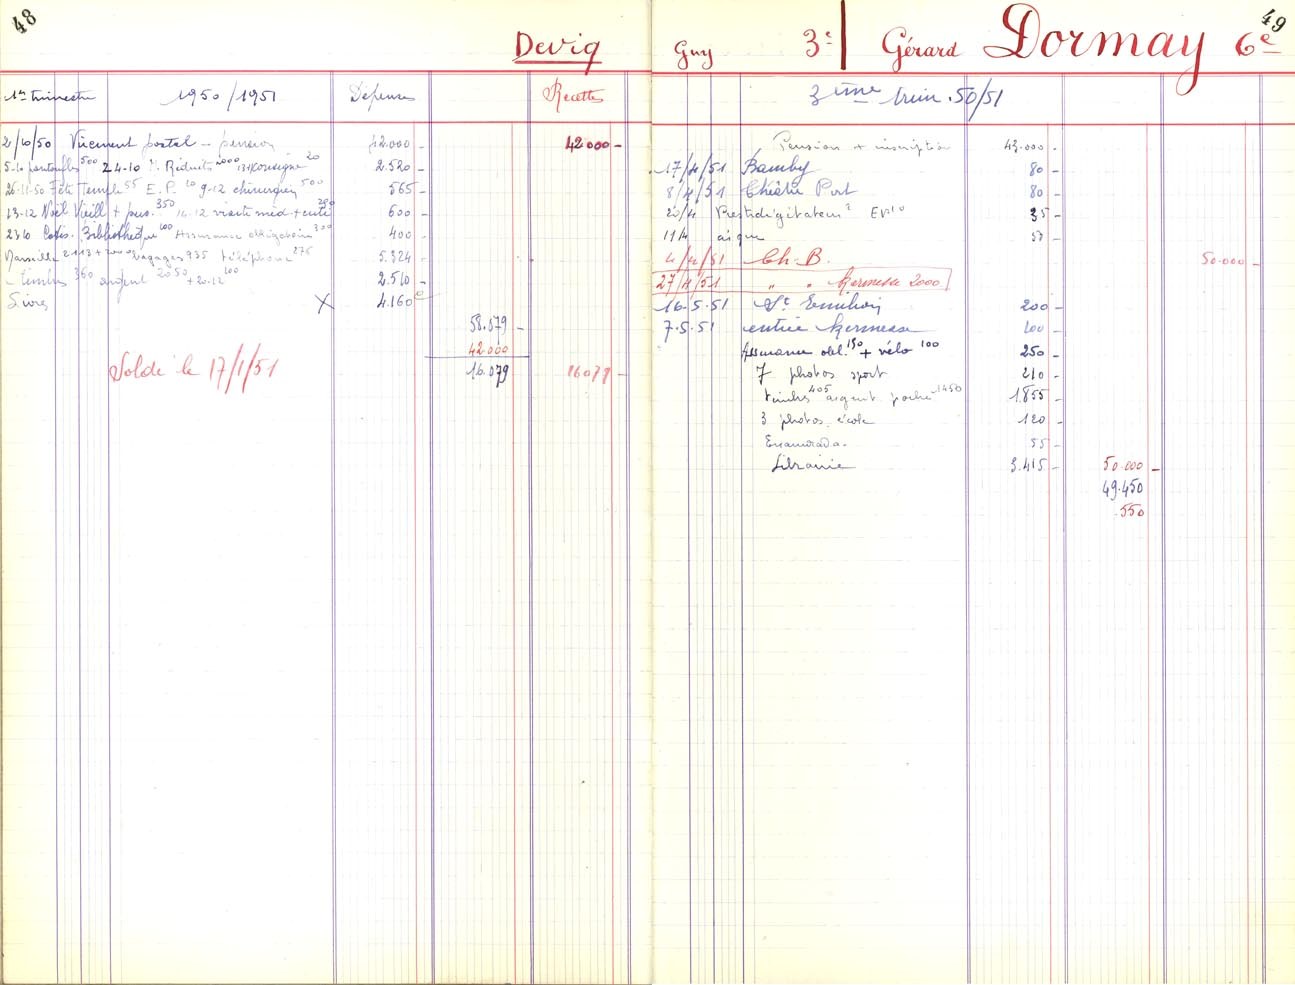 48
Deviq
1er trimestre 1950/1951 Dépenses Recettes
2/10/50 Virement postal – pension 42.000 - 42000 -
5-10 pantoufles 500 24-10 Réduits 2000 consigne 20 2.520 -
26-11-50 Fête Temple 55 E.P. 10 9-12 chirurgien 500 565 -
13-12 Noël Vieill + pus. 350 16.12 visite méd + cuti 600 -
23 10 Cotis. Bibliothèque 100 Assurance obligatoire 300 400 -
Marseille bagages 935 téléphone 276 5.324 -
- timbres 360 argent 2050 + 20-12 100 2.510 -
Livres X 4.160
58.079 -
42.000
16.079 16079 -
Solde le 17/1/51
49
Guy 3e Gérard Dormay 6e
3ème trim. 50/51
Pension + inscription 43.000 -
17/4/51 Bamby 80 -
8/4/51 Théâtre Port 80 -
20/4 Prestidigitateur 35 -
11/4 55 -
4/4/51 Ch. B. 50.000 -
27/4/51 " " Kermesse 2000
16.5.51 St Emilion 200 -
7.5.51 entrée kermesse 100 -
Assurance obl. 150 + vélo 100 250 -
7 photos sport 210 -
timbres 405 argent poche 1450 1.855 -
3 photos école 120 -
Enamorada. 55 -
Librairie 3.415 - 50.000 -
49.450
550